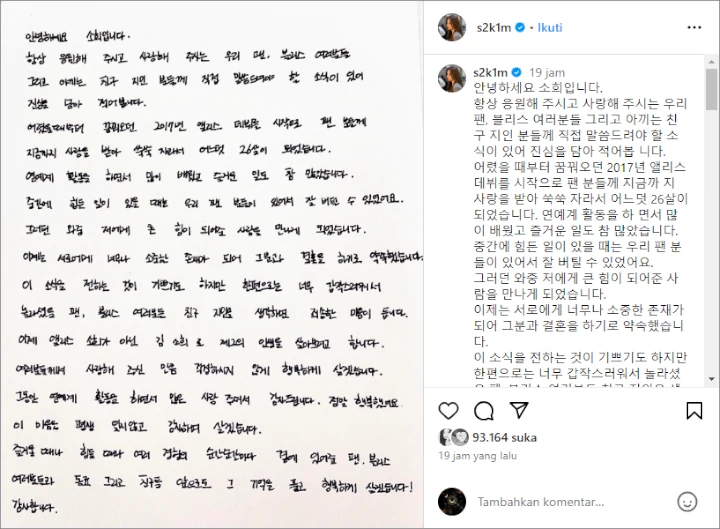 안녕하세요 소희입니다.
항상 응원해 주시고 사랑해 주시는 우리 팬, 블리스 여러분들
그리고 아끼는 친구 지인 분들께 직접 말씀드려야 할 소식이 있어
진심을 담아 적어봅니다.
어렸을때부터 꿈꿔오던 2017년 앨리스 데뷔를 시작으로 팬 분들께
지금까지 사랑을 받아 쑥쑥 자라서 어느덧 26살이 되었습니다.
연예계 활동을 하면서 많이 배웠고 즐거운 일도 참 많았습니다.
중간에 힘든 일이 있을 때는 우리 팬 분들이 있어서 잘 버틸 수 있었어요.
그러던 와중 저에게 큰 힘이 되어준 사람을 만나게 되었습니다.
이제는 서로에게 너무나 소중한 존재가 되어 그분과 결혼을 하기로 약속했습니다.
이 소식을 전하는 것이 기쁘기도 하지만 한편으로는 너무 갑작스러워서
놀라셨을 팬, 블리스 여러분들 친구 지인을 생각하면 죄송한 마음이 듭니다.
이제 앨리스 소희가 아닌 김소희로 제2의 인생을 살아보려고 합니다.
여러분들께서 사랑해 주신 만큼 걱정하시지 않게 행복하게 살겠습니다.
그동안 연예계 활동을 하면서 많은 사랑 주셔서 감사드립니다. 정말 행복했어요.
이 마음은 평생 잊지않고 감사하며 살겠습니다.
즐거울 때나 힘들 때나 여러 경험의 순간순간마다 곁에 있어준 팬, 블리스
여러분들과 동료 그리고 친구들 앞으로도 그 기억을 품고 행복하게 살겠습니다!
감사합니다.
s2k1m • Ikuti
s2k1m 19 jam
안녕하세요 소희입니다.
항상 응원해 주시고 사랑해 주시는 우리
팬, 블리스 여러분들 그리고 아끼는 친
구 지인 분들께 직접 말씀드려야 할 소
식이 있어 진심을 담아 적어봅 니다.
어렸을 때부터 꿈꿔오던 2017년 앨리스
데뷔를 시작으로 팬 분들께 지금까 지
사랑을 받아 쑥쑥 자라서 어느덧 26살이
되었습니다. 연예계 활동을 하 면서 많
이 배웠고 즐거운 일도 참 많았습니다.
중간에 힘든 일이 있을 때는 우리 팬 분
들이 있어서 잘 버틸 수 있었어요.
그러던 와중 저에게 큰 힘이 되어준 사
람을 만나게 되었습니다.
이제는 서로에게 너무나 소중한 존재가
되어 그분과 결혼을 하기로 약속했습니
다.
이 소식을 전하는 것이 기쁘기도 하지만
한편으로는 너무 갑작스러워서 놀라셨
93.164 suka
19 jam yang lalu
Tambahkan komentar...